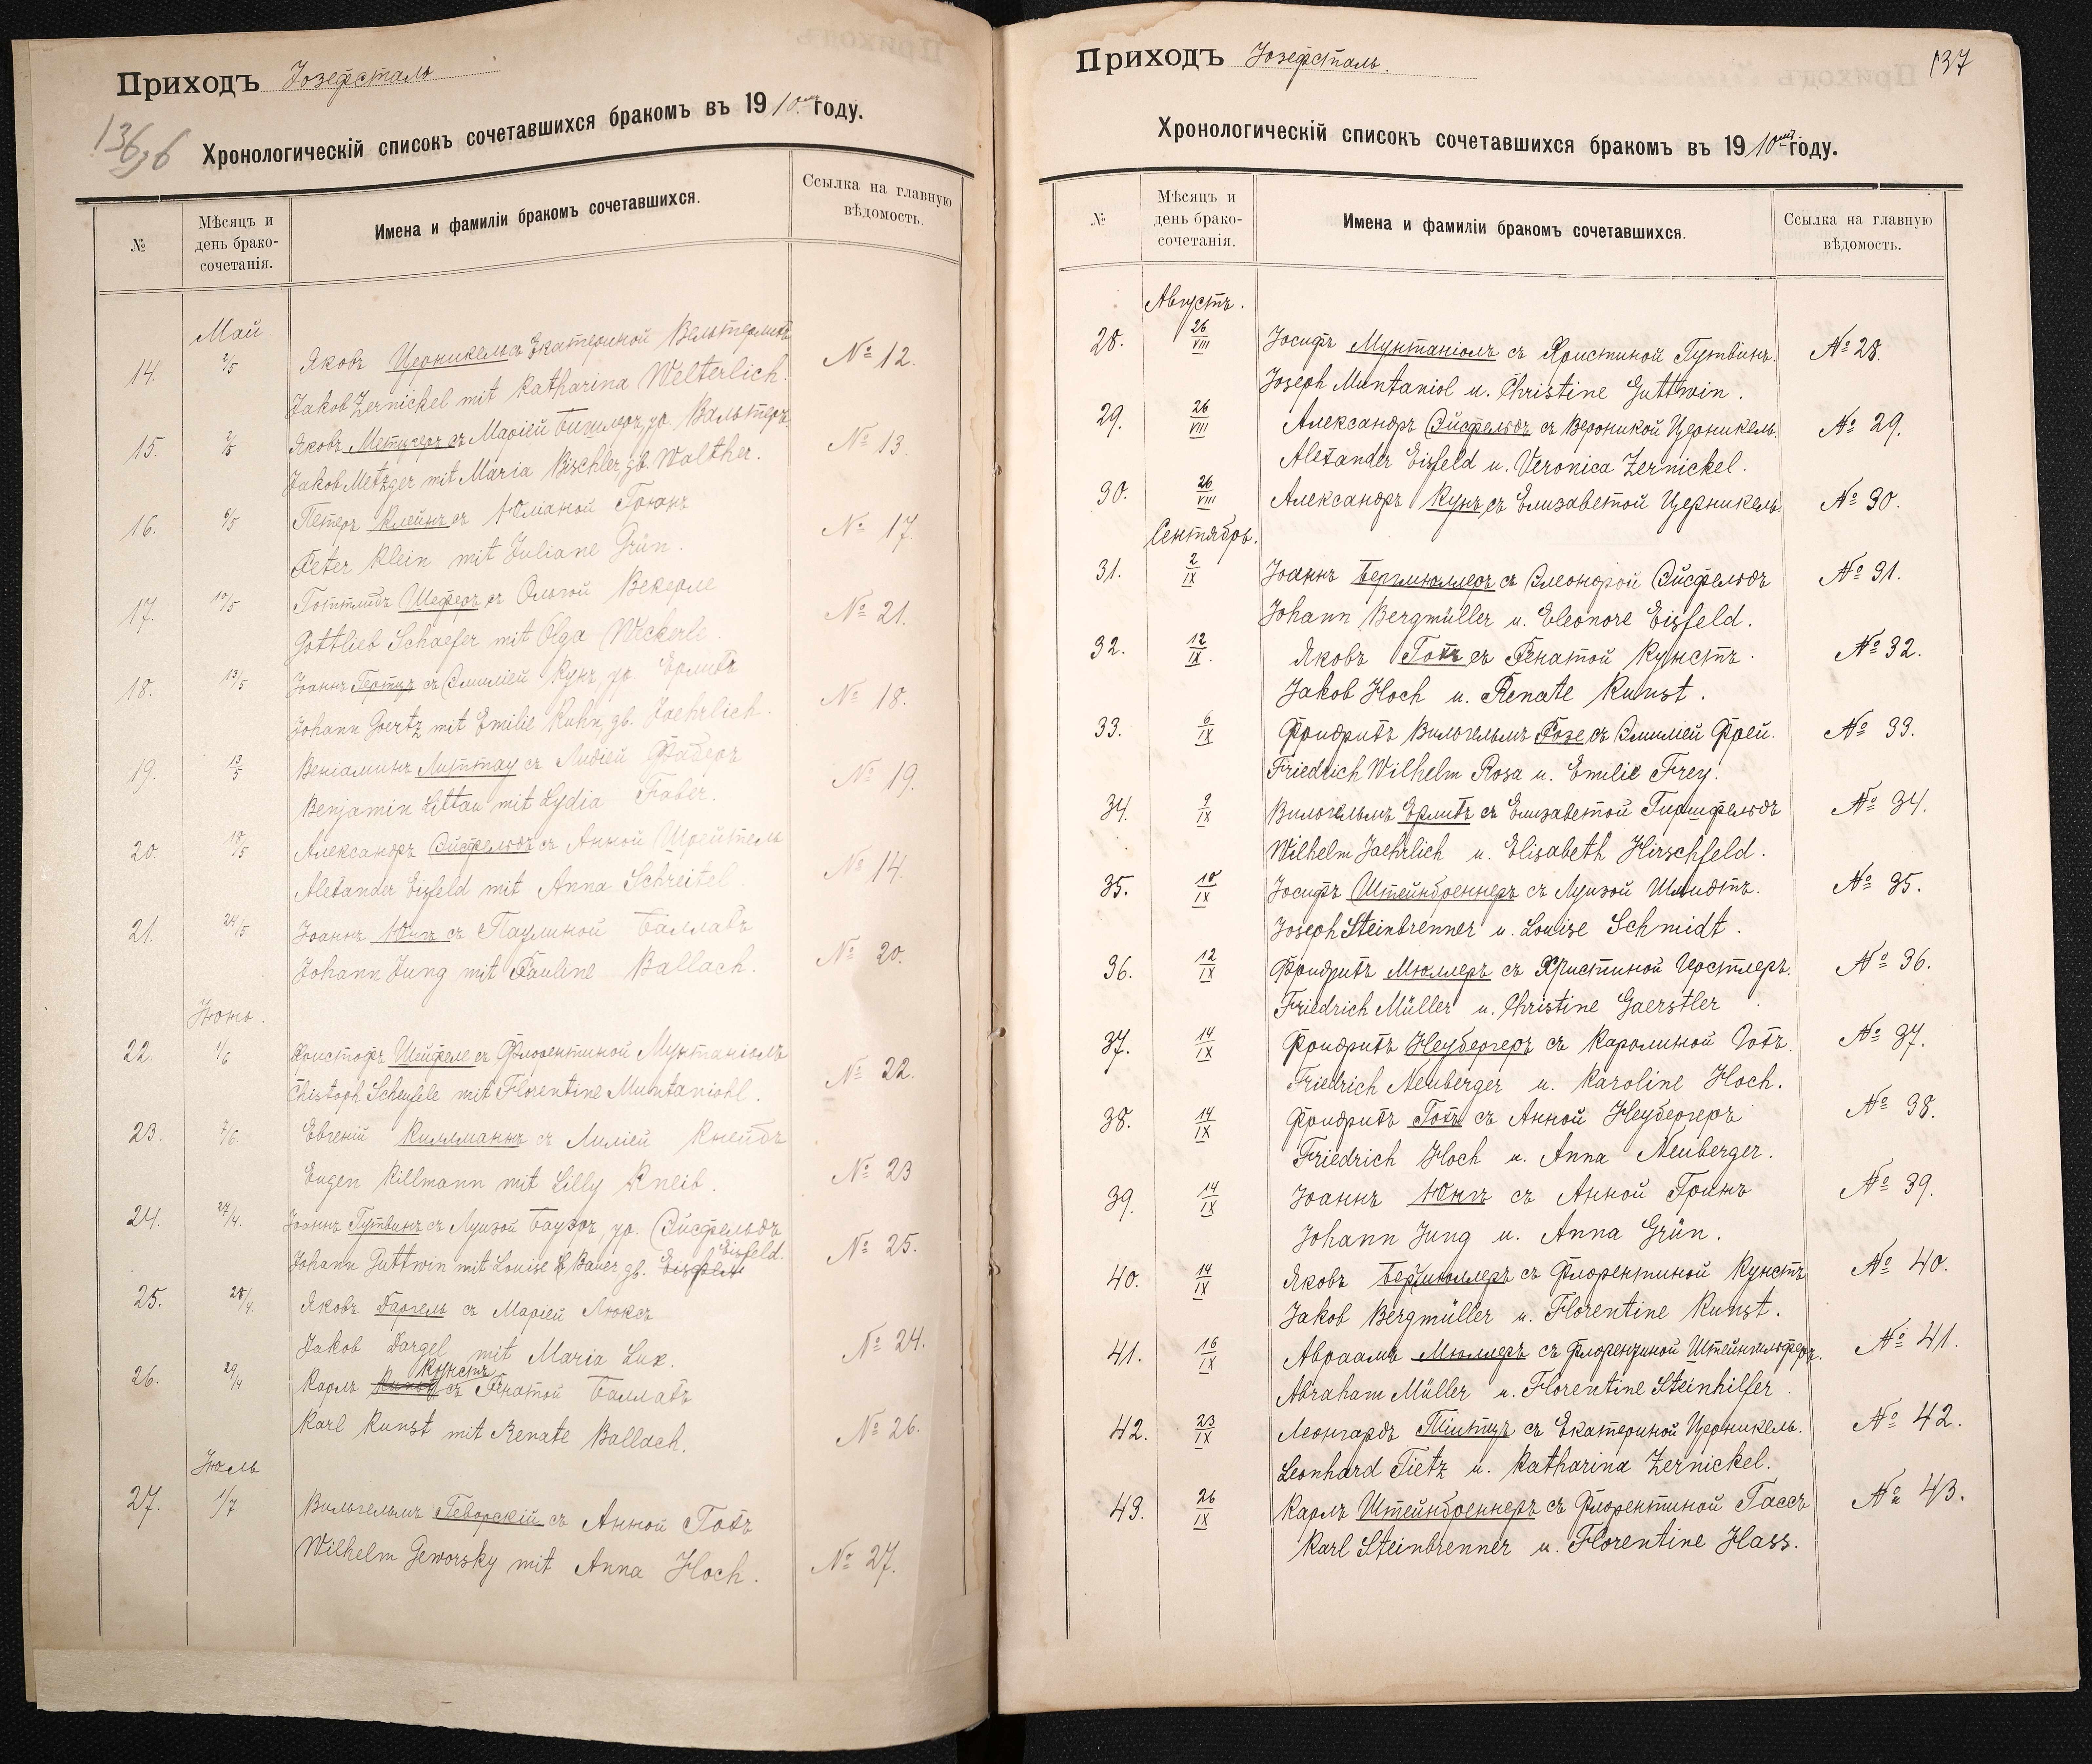 Приходъ Іозефсталь
136
Хронологическій списокъ сочетавшихся бракомъ въ 1910 году.
№
Мѣсяцъ и день брако-сочетанія.
Имена и фамиліи бракомъ сочетавшихся.
Ссылка на главную вѣдомость.
Май
14. 2/5 Яковъ Церникель съ Екатериной Вельтерлихъ № 12.
Jakob Zernickel mit Katharina Welterlich.
15. 2/5 Яковъ Мецгеръ съ Маріей Бишлеръ, ур. Вальтеръ № 13.
Jakob Metzger mit Maria Bischler, gb. Walther.
16. 6/5 Петеръ Клейнъ съ Юліаной Грюнъ № 17.
Peter Klein mit Juliane Grün.
17. 10/5 Готтлибъ Шеферъ съ Ольгой Векерле № 21.
Gottlieb Schaefer mit Olga Weckerle.
18. 13/5 Іоаннъ Гертцъ съ Эмиліей Кунъ ур. Ерлихъ № 18.
Johann Goertz mit Emilie Kuhn, gb. Jaehrlich.
19. 13/5 Веніаминъ Литтау съ Лидіей Фаберъ № 19.
Benjamin Littau mit Lydia Faber.
20. 18/5 Александръ Эйсфельдъ съ Анной Шрейтель № 14.
Alexander Eisfeld mit Anna Schreitel.
21. 24/5 Іоаннъ Юнгъ съ Паулиной Баллахъ № 20.
Johann Jung mit Pauline Ballach.
Іюнь.
22. 1/6 Христофъ Шейфеле съ Флорентиной Мунтаніоль № 22.
Christoph Scheufele mit Florentine Muntaniohl.
23. 7/6 Евгеній Киллманнъ съ Лиліей Кнейбъ
Eugen Killmann mit Lilly Kneib. № 23
24. 27/4. Іоаннъ Гутвинъ съ Луизой Бауэръ, ур. Эйсфельдъ
Johann Guttwin mit Louise Bauer, gb. Eisfeld. № 25.
25. 28/4. Яковъ Даргель съ Маріей Люксъ
Jakob Dargel mit Maria Lux. № 24.
26. 29/4 Карлъ Кунстъ съ Ренатой Баллахъ
Karl Kunst mit Renate Ballach. № 26.
Іюль
27. 1/7 Вильгельмъ Геворскій съ Анной Гохъ
Wilhelm Geworsky mit Anna Hoch. № 27.
Приходъ Іозефсталь.
137
Хронологическій списокъ сочетавшихся бракомъ въ 1910 году.
№
Мѣсяцъ и день брако-сочетанія.
Имена и фамиліи бракомъ сочетавшихся.
Ссылка на главную вѣдомость.
Августъ.
28. 26/VIII Іосифъ Мунтаніолъ съ Христиной Гутвинъ. № 28.
Joseph Muntaniol u. Christine Guttwin.
29. 26/VIII Александръ Эйсфельдъ съ Вероникой Церникель. № 29.
Alexander Eisfeld u. Veronica Zernickel.
30. 26/VIII Александръ Кунъ съ Елизаветой Церникель. № 30.
Сентябрь.
31. 2/IX Іоаннъ Бергмюллеръ съ Элеонорой Эйсфельдъ № 31.
Johann Bergmüller u. Eleonore Eisfeld.
32. 12/IX. Яковъ Гохъ съ Ренатой Кунстъ. № 32.
Jakob Hoch u. Renate Kunst.
33. 6/IX Фридрихъ Вильгельмъ Розе съ Эмиліей Фрей. № 33.
Friedrich Wilhelm Rosa u. Emilie Frey.
34. 9/IX Вильгельмъ Ерлихъ съ Елизаветой Гиршфельдъ № 34.
Wilhelm Jaehrlich u. Elisabeth Hirschfeld.
35. 10/IX Іосифъ Штейнбреннеръ съ Луизой Шмидтъ. № 35.
Joseph Steinbrenner u. Louise Schmidt.
36. 12/IX Фридрихъ Мюллеръ съ Христиной Герстлеръ. № 36.
Friedrich Müller u. Christine Gaerstler
37. 14/IX Фридрихъ Неубергеръ съ Каролиной Гохъ. № 37.
Friedrich Neuberger u. Karoline Hoch.
38. 14/IX Фридрихъ Гохъ съ Анной Неубергеръ № 38.
Friedrich Hoch u. Anna Neuberger.
39. 14/IX Іоаннъ Юнгъ съ Анной Гринъ № 39.
Johann Jung u. Anna Grün.
40. 14/IX Яковъ Бергмюллеръ съ Флорентиной Кунстъ № 40.
Jakob Bergmüller u. Florentine Kunst.
41. 16/IX Авраамъ Мюллеръ съ Флорентиной Штейнгильферъ. № 41.
Abraham Müller u. Florentine Steinhilfer.
42. 23/IX Леонгардъ Тіитцъ съ Екатериной Церникель. № 42.
Leonhard Tietz u. Katharina Zernickel.
43. 26/IX Карлъ Штейнбреннеръ съ Флорентиной Гассъ № 43.
Karl Steinbrenner u. Florentine Hass.